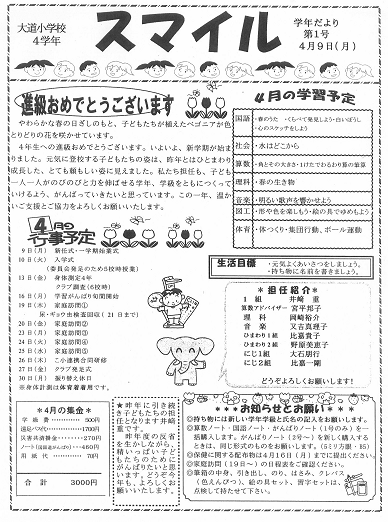 大道小学校
4学年
スマイル
学年だより
第1号
4月9日(月)
進級おめでとうございます
やわらかな春の日ざしのもと、子どもたちが植えたベゴニアが色
とりどりの花を咲かせています。
4年生への進級おめでとうございます。いよいよ、新学期が始ま
りました。元気に登校する子どもたちの姿は、昨年とはひとまわり
成長した、とても頼もしい姿に見えました。私たち担任も、子ども
一人一人がのびのびと力を伸ばせる学年、学級をともにつくって
いけるよう、がんばっていきたいと思っています。この一年、温か
いご支援とご協力をよろしくお願いいたします。
4月の行事予定
9日(月) 新任式・一学期始業式
10日(火) 入学式
(委員会発足のため5校時授業)
13日(金) 身体測定4年
クラブ調査(6校時)
16日(月) 学習がんばり旬間開始
19日(木) 家庭訪問①
尿・ギョウ虫検査回収(21日まで)
20日(金) 家庭訪問②
23日(月) 家庭訪問③
24日(火) 家庭訪問④
25日(水) 家庭訪問⑤
26日(木) 小小連携合同研修
27日(金) クラブ発足式
30日(月) 振り替え休日
※身体計測は体育着着用です。
4月の学習予定
国語 ・春のうた ・くらべて発見しよう・白いぼうし
・心のスケッチをしよう
社会 ・水はどこから
算数 ・角とその大きさ・1けたでわるわり算の筆算
理科 ・春の生き物
音楽 ・明るい歌声を響かせよう
図工 ・形や色を楽しもう・絵の具でゆめもよう
体育 ・体つくり・集団行動、ボール運動
生活目標 ・元気よくあいさつをしましょう。
・持ち物に名前を書きましょう。
*担任紹介*
1組 井﨑 重
算数アドバイザー 宮平邦子
理科 岡崎裕介
音楽 又吉真理子
ひまわり1組 比嘉貴子
ひまわり2組 野原美恵子
にじ1組 大石朋行
にじ2組 比嘉一剛
どうぞよろしくお願いします!
*4月の集金*
学級費 500円
遠足バス代 1700円
災害共済掛金 270円
ノート(国語がんばり) 460円
用紙代 70円
合計 3000円
★昨年に引き続
き子どもたちの担
任となります井﨑
重です。
昨年度の反省
を生かしながら、
精いっぱい子ど
もたちのために
がんばりたいと思
います。どうぞ今
年も、よろしくお
願いいたします。
***お知らせとお願い***
◎持ち物には新しい学年学級と氏名の記入をお願いします。
◎算数ノート・国語ノート・がんばりノート(1号のみ)を一
括購入します。がんばりノート(2号~)を新しく購入する
ときは、同じ形式のものをお願いします。(5ミリ方眼・B5)
◎保健に関する配布物は4月16日(月)までに提出ください。
◎家庭訪問(19日~)の日程表をご確認ください。
◎筆箱の中身、引き出し、のり、はさみ、クレパス
(色えんぴつ)、絵の具セット、習字セットは、
点検して持たせて下さい。